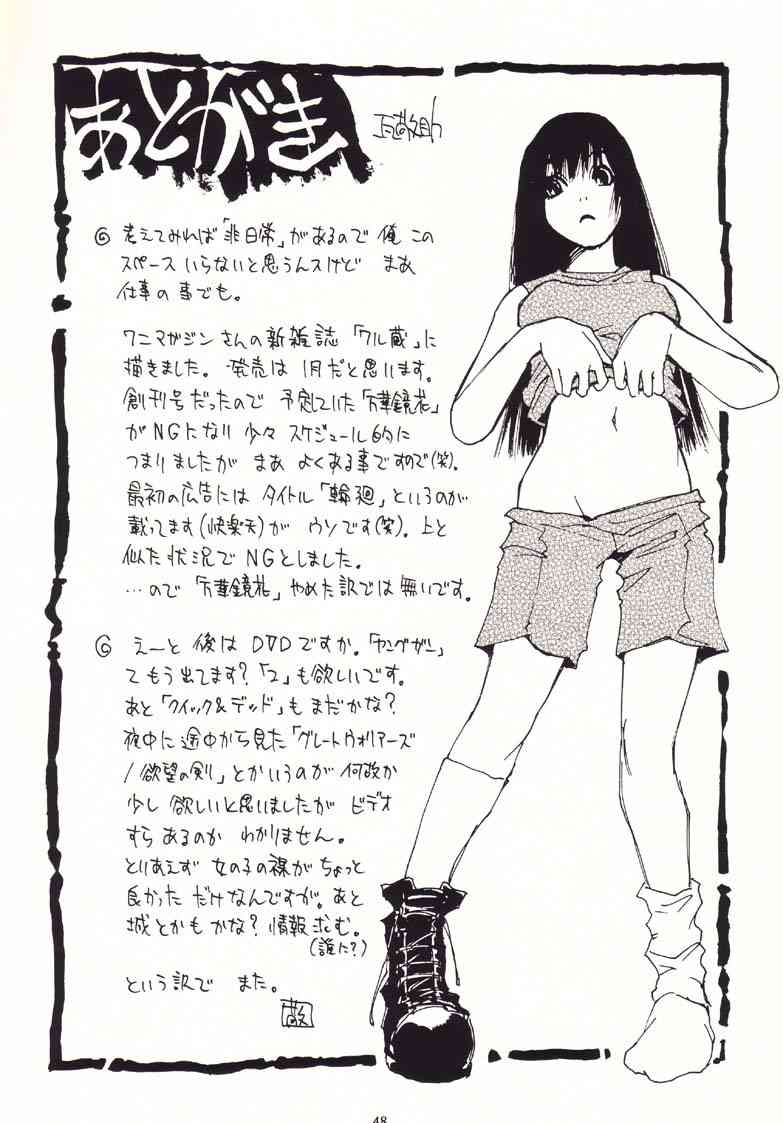 あとがき
◎ 考えてみれば「非日常」があるので 俺 この
スペース いらないと思うんスけど まあ
仕事の事でも。
ワニマガジン さんの新雑誌「ワル蔵」に
描きました。発売は 1月だと思います。
創刊号だったので 予定していた「万華鏡花」
が NGになり 少々 スケジュール的に
つまりましたが まあ よくある事ですので(笑)。
最初の広告には タイトル「輪廻」というのが
載ってます(快楽天)が ウソです(笑)。上と
似た状況で NGとしました。
…ので「万華鏡花」やめた訳では無いです。
◎ えーと 後は DVDですか。「ヤングガン」
てもう出てます?「2」も欲しいです。
あと「クイック&デッド」も まだかな?
夜中に途中から見た「グレートウォリアーズ
/欲望の剣」とかいうのが 何故か
少し 欲しいと思いましたが ビデオ
すら あるのか わかりません。
とりあえず 女の子の裸が ちょっと
良かった だけなんですが。あと
城とかも かな? 情報求む。
(誰に?)
という訳で また。
48